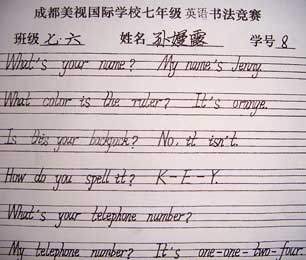 成都美视国际学校七年级英语书法竞赛
班级 七.六 姓名 孙婷露 学号 8
What's your name? My name's Jenny.
What color is the ruler? It's orange.
Is this your backpack? No, it isn't.
How do you spell it? K-E-Y.
What's your telephone number?
My telephone number? It's one-one-two-four